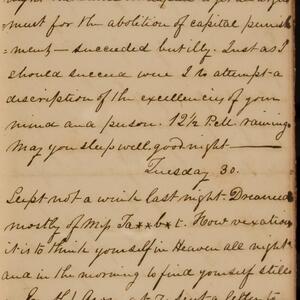 ment for the abolition of capital punish
-ment – succeeded but illy. Just as I
should succeed were I to attempt a
discription of the excellencies of your
mind and person. 12½ P.M. raining
May you sleep well, good night —
Tuesday 30.
Slept not a wink last night. Dreamed
mostly of Miss Ta**b*t. How vexation
it is to think yourself in Heaven all night
and in the morning to find yourself still